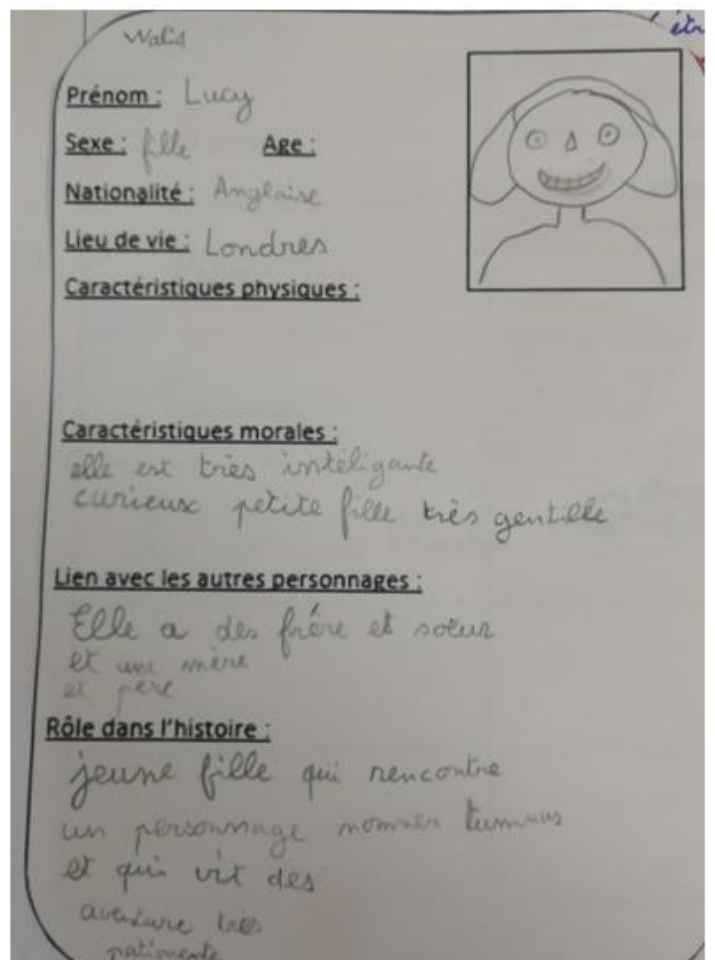 Walid
êtr
Prénom : Lucy
Sexe : fille Age :
Nationalité : Anglaise
Lieu de vie : Londres
Caractéristiques physiques :
Caractéristiques morales :
elle est très intéligante
curieux petite fille très gentille
Lien avec les autres personnages :
Elle a des frére et soeur
et une mère
et père
Rôle dans l'histoire :
jeune fille qui rencontre
un personnage nommer tumnus
et qui vit des
aventure très